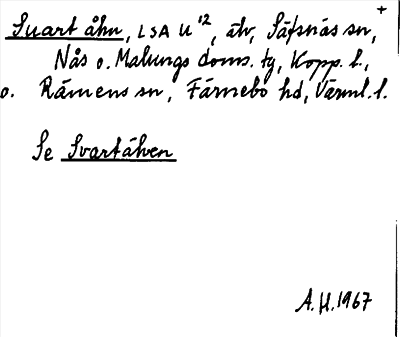 +
Suart åhn, LSA U¹², älv, Säfsnäs sn,
Nås o. Malungs doms. tg, Kopp. l.,
o. Rämens sn, Färnebo hd, Värml. l.
Se Svartälven
A.H. 1967